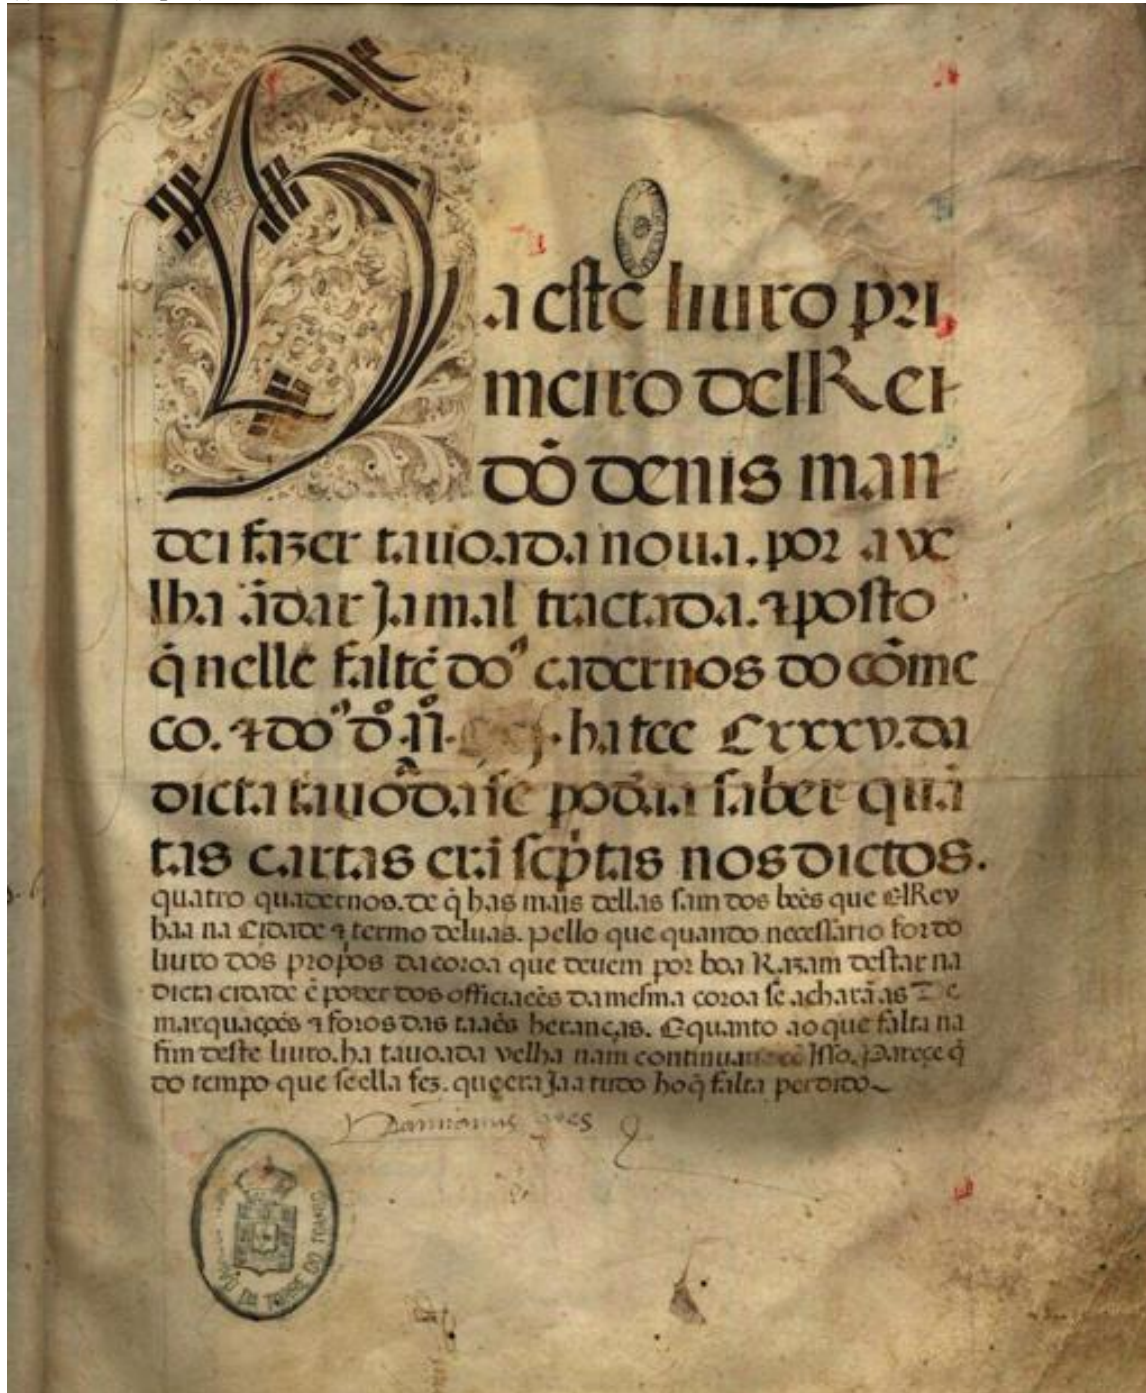 Ha este liuro pri
meiro delRei
dõ denis man
dei fazer tauoada noua. por a ve
lha ãdar Ja mal tractada. ⁊ posto
q̃ nelle faltẽ doꝰ cadernos do cõme
co. ⁊ doꝰ dº. nº. ha tee Cxxxv. da
dicta tauoᵃda se podᵃia saber quã
tas cartas erã scp̃tas nos dictos.
quatro quadernos. de q̃ has mais dellas sam dos beẽs que elRey
haa na Cidade ⁊ termo deluas. pello que quando necessario for do
liuro dos propos da coroa que deuem por boa Razam destar na
dicta cidade ẽ poder dos officiaees da mesma coroa se acharã as De
marquações ⁊ foros das taaes heranças. E quanto ao que falta na
fim deste liuro. ha tauoada velha nam continuaua Isso. Pareçe q̃
do tempo que se ella fez. que era Jaa tudo ho q̃ falta perdido~
Damianus goes
DA TORRE DO TOMBO